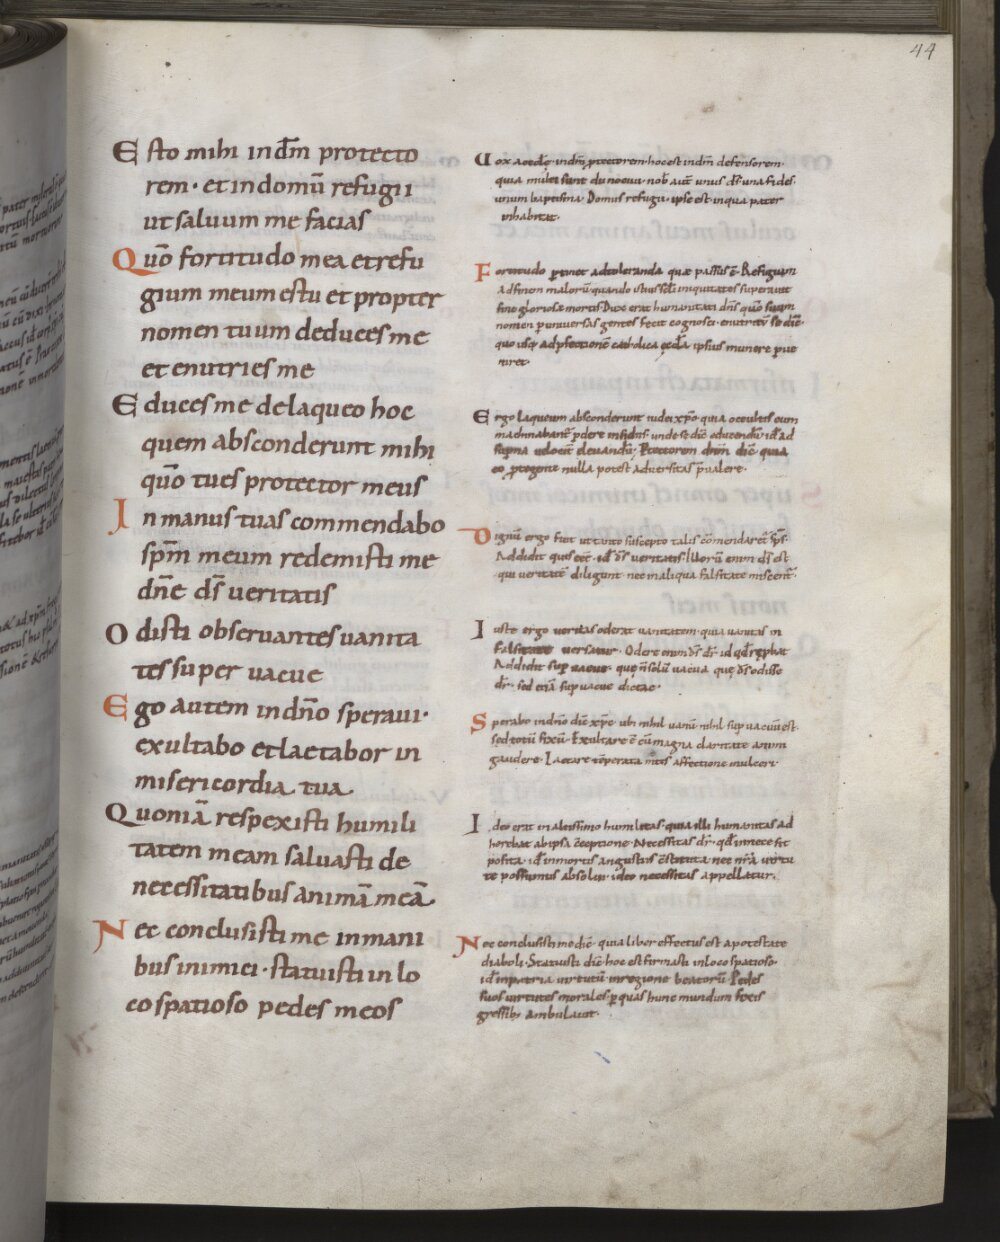 44
Esto mihi in dm̄ protecto
rem · et in domū refugii
ut saluum me facias
Quō fortitudo mea et refu
gium meum es tu et propter
nomen tuum deduces me
et enutries me
Educes me de laqueo hoc
quem absconderunt mihi
quō tu es protector meus
In manus tuas commendabo
spm̄ meum redemisti me
dn̄e ds̄ ueritatis
Odisti obseruantes uanita
tes super uacue
Ego autem in dn̄o speraui ·
exultabo et laetabor in
misericordia tua
Quoniā respexisti humili
tatem meam saluasti de
necessitatibus animā meā
Nec conclusisti me in mani
bus inimici · statuisti in lo
co spatioso pedes meos
Uox in dm̄ protectorem hoc est in dm̄ defensorem ·
quia multi sunt nob̄ aut̄ unus ds̄ una fides ·
unum baptisma · Domus refugii · ipse est in qua pater
inhabitat ·
Fortitudo ꝑtinet ad toleranda quae passus ē · Refugium
ad finem malorū quando iniquitates superauit
fine gloriose mortis Dux erat humanitati dn̄s quō suum
nomen ꝑ uniuersas gentes fecit cognosci · se dic̄
quo usq; ad ꝑfectionē catholica ipsius munere ꝑue
niret ·
Ergo laqueum absconderunt iudei xp̄o quia occultis eum
machinabant̄ ꝑdere insidiis · unde se dic̄ educendū · id ad
superna uelociter eleuandū · Protectorem dic̄ quia
eo ꝓtegente nulla potest aduersitas p̄ualere ·
Dignū ergo fuit ut tuto suscepto talis cōmendaret̄ sps̄ ·
Addidit quis eēt · id ds̄ ueritatis · illorū enim ds̄ est
qui ueritatē diligunt · nec in aliqua falsitate miscent̄ ·
Iuste ergo ueritas oderat uanitatem · quia uanitas in
falsitate uersatur · Odere enim ds̄ dr̄ · id qd̄
Addidit sup uacue · quę n̄ solū uacua quę ds̄ odisse
dr̄ · sed etiā sup uacue dictae ·
Sperabo in dn̄o dic̄ xp̄c · ubi nihil uanū nihil sup uacuū est ·
sed totū fixū · Exultare ē cū magna claritate animi
gaudere · Laetare tēperata mentis affectione mulceri ·
Ideo erat in altissimo humilitas · quia illi humanitas ad
horebat ab ipsa cōceptione · Necessitas dr̄ · qd̄ in necesse fit
posita · id in mortis angustiis cōstituta · nec nr̄a uirtu
te possumus absolui · ideo necessitas appellatur ·
Nec conclusisti me dic̄ · quia liber effectus est a potestate
diaboli · Statuisti dic̄ hoc est firmasti in loco spatioso ·
id in patria uirtutū · in regione beatorū · Pedes
suos uirtutes morales ꝑ quas hunc mundum fixis
gressib; ambulauit ·